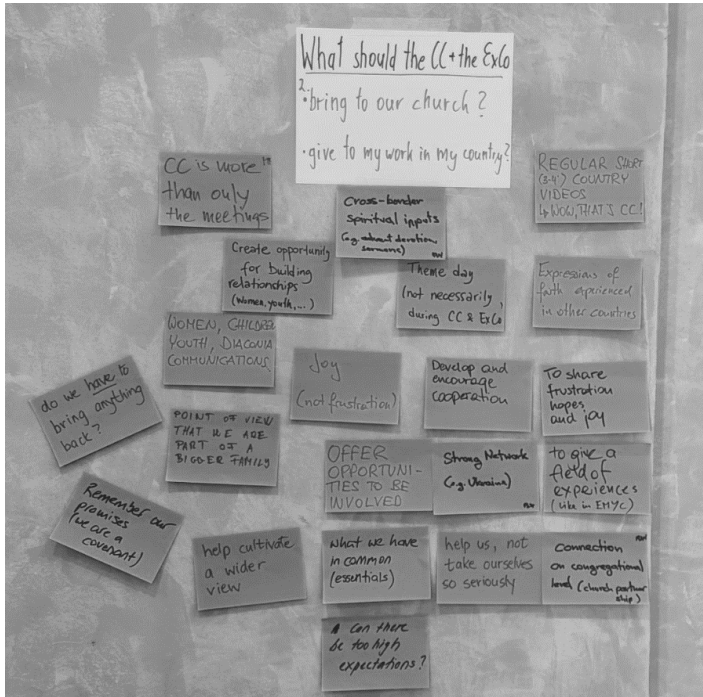 What should the CC + the ExCo
2.
• bring to our church?
• give to my work in my country?
CC is more
than only
the meetings
Cross-border
spiritual inputs
(e.g. advent devotion,
sermons)
REGULAR SHORT
(3-4') COUNTRY
VIDEOS
↳ WOW, THAT'S CC!
Create opportunity
for building
relationships
(Women, youth, ...)
Theme day
(not necessarily
during CC & ExCo
Expressions of
faith experienced
in other countries
WOMEN, CHILDREN
YOUTH, DIACONIA
COMMUNICATIONS
Joy
(not frustration)
Develop and
encourage
cooperation
To share
frustration
hopes
and joy
do we have to
bring anything
back?
POINT OF VIEW
THAT WE ARE
PART OF A
BIGGER FAMILY
OFFER
OPPORTUNI-
TIES TO BE
INVOLVED
Strong Network
(e.g. Ukraine)
to give a
field of
experiences
(like in EMYC)
Remember our
promises
(we are a
covenant)
help cultivate
a wider
view
What we have
in common
(essentials)
help us, not
take ourselves
so seriously
Connection
on congregational
level (church partner
ship)
Can there
be too high
expectations?